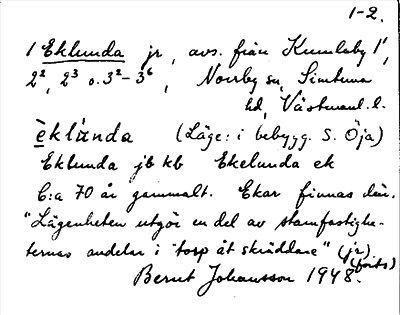 1-2.
1 Eklunda jr, avs. från Kumlaby 1¹,
2², 2³ o. 3²-3⁶, Norrby sn, Simtuna
hd, Västmanl. l.
èklúnda (Läge: i bebygg. S. Öja)
Eklunda jb kb Ekelunda ek
C:a 70 år gammalt. Ekar finnas där.
"Lägenheten utgör en del av stamfastighe-
ternas andelar i torp åt skräddare" (jr)
(forts)
Bernt Johansson 1948.